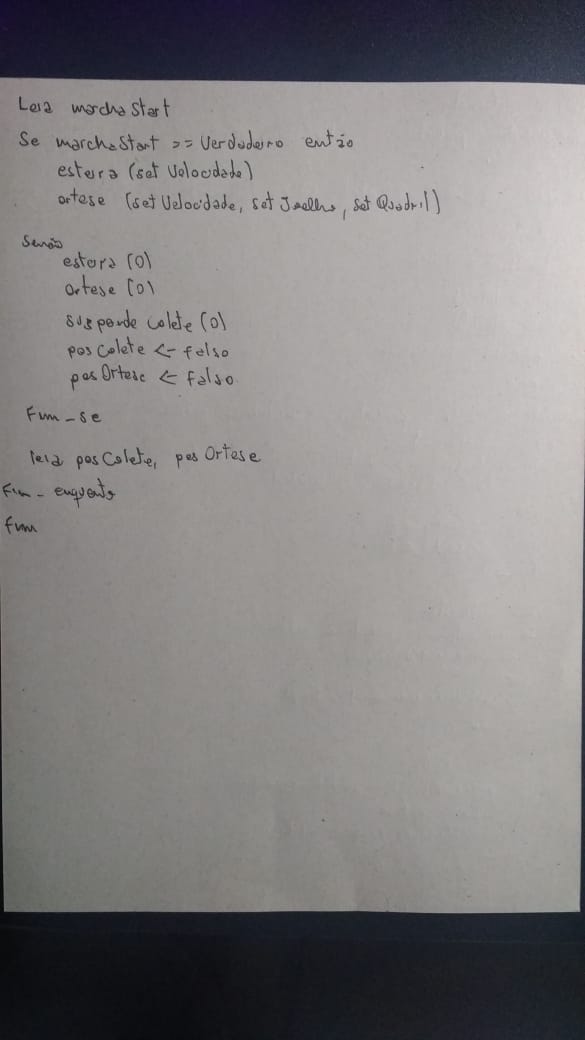 Leia marchaStart
Se marchaStart == Verdadeiro então
esteira (set Velocidade)
ortese (set Velocidade, set Joelho, set Quadril)
Senão
esteira (0)
ortese (0)
suspende colete (0)
pos Colete <- falso
pos Ortese <- falso
Fim-se
leia pos Colete, pos Ortese
Fim-enquanto
fim